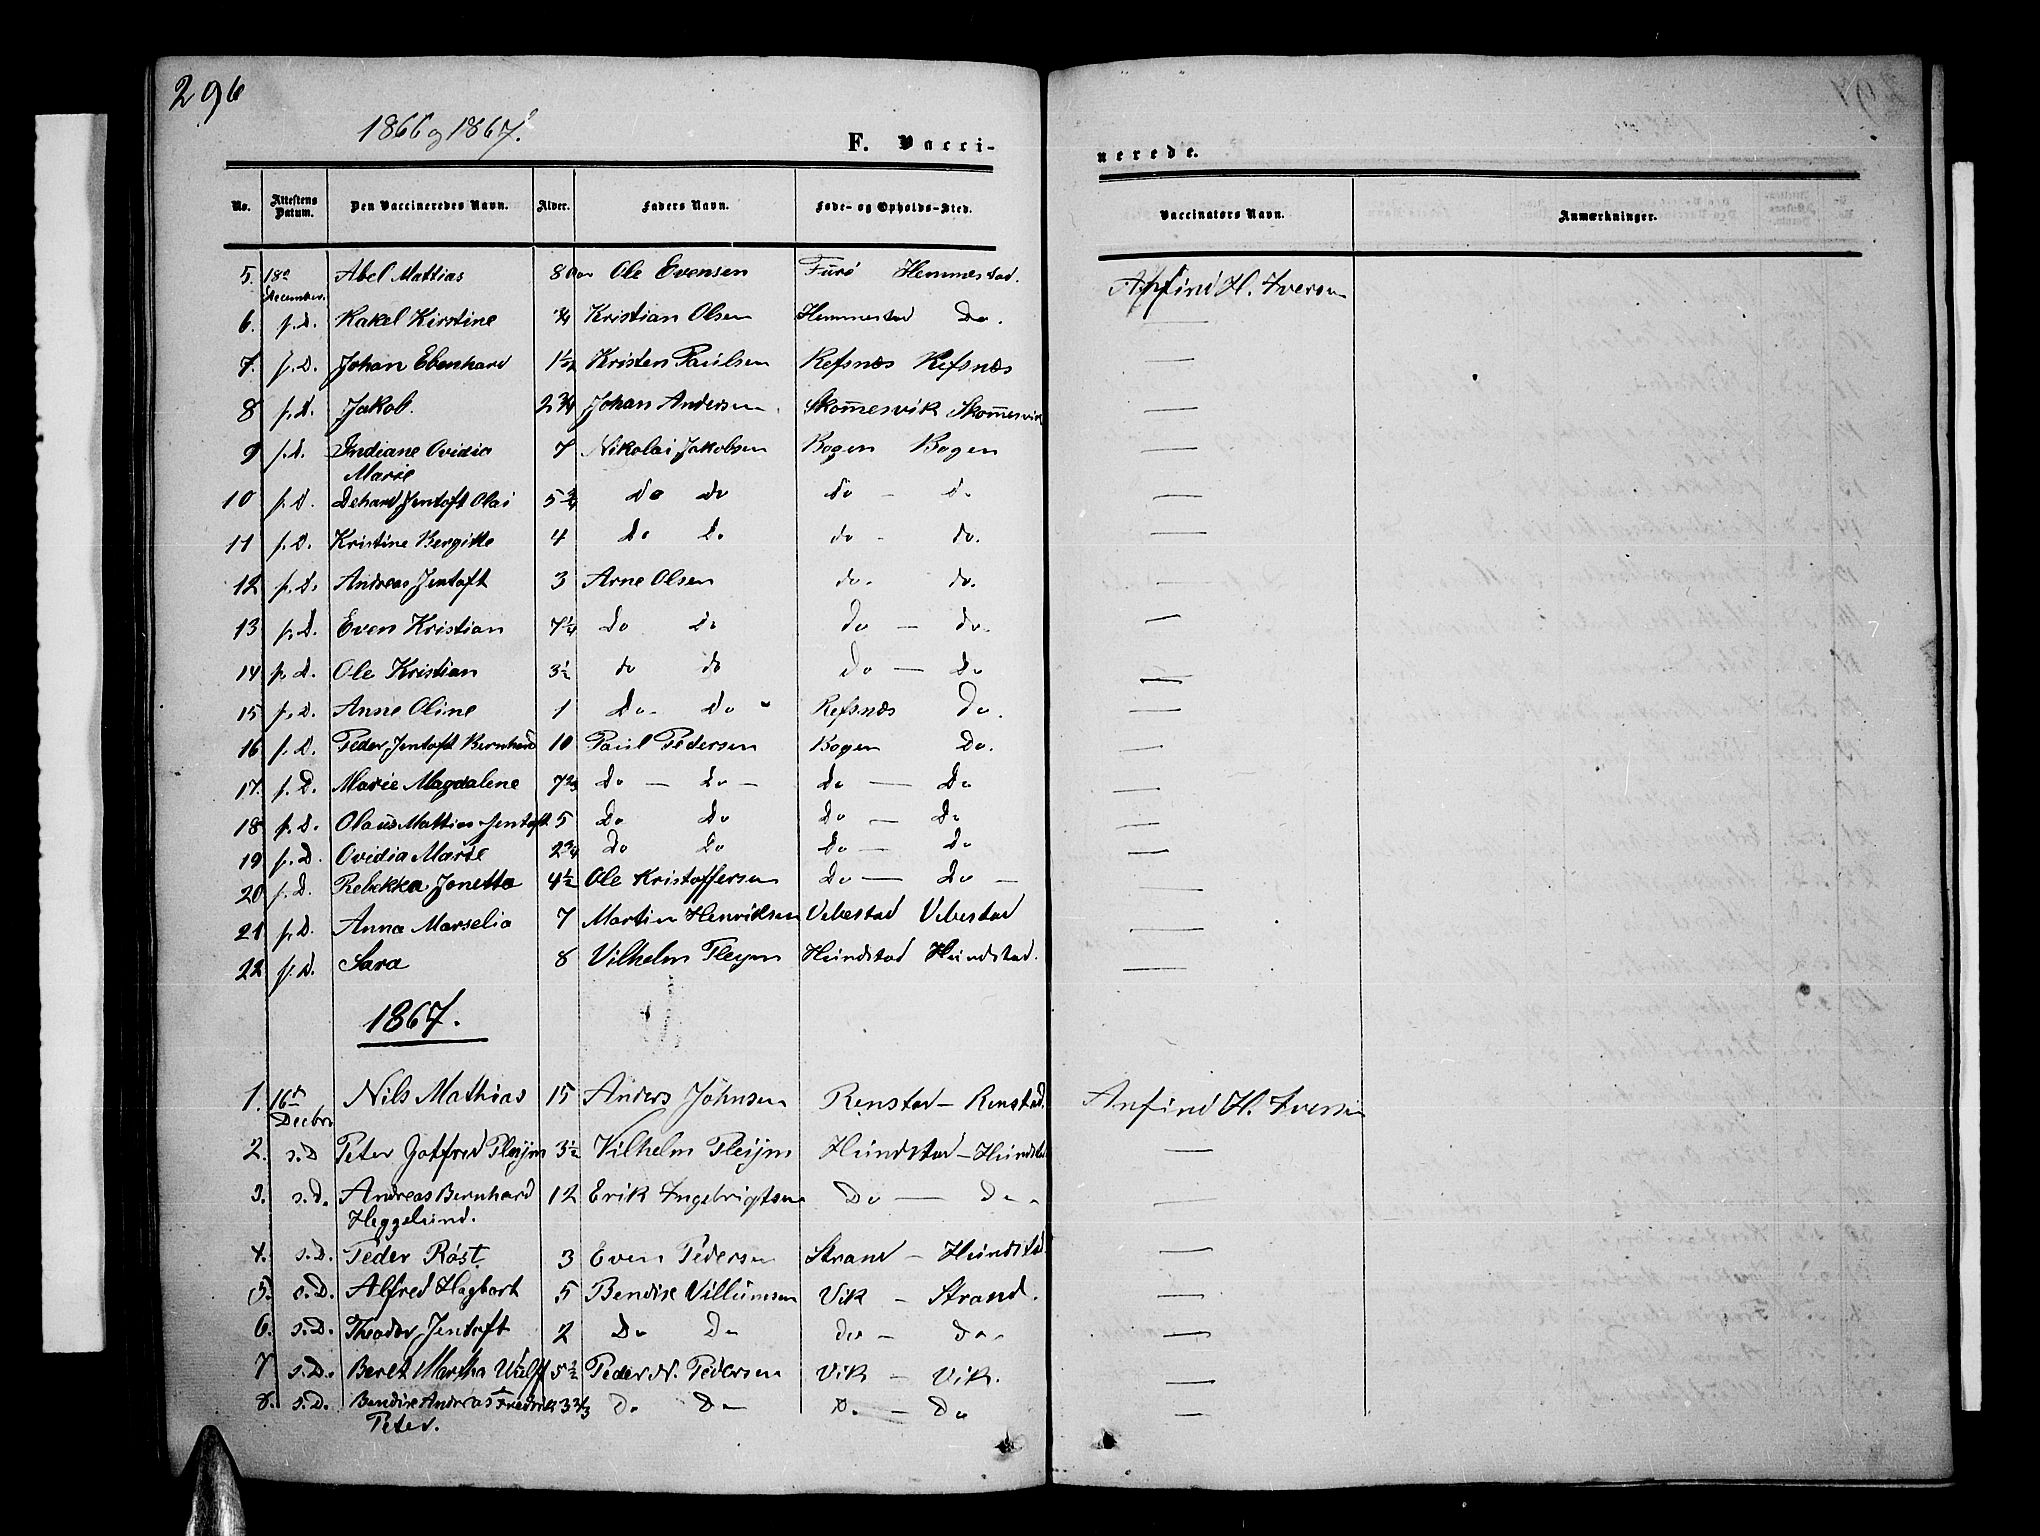 296
1866 og 1867.
F. Vacci-
nerede.
No. Attestens Datum. Den Vaccineredes Navn. Alder. Faders Navn. Føde- og Opholds-Sted. Vaccinatørs Navn. Anmærkninger.
5. 18de December. Abel Mattias 8 Aar Ole Evensen Furö Hemmestad. Anfind H. Iversen
6. s.D. Rakel Kirstine ¾ Kristian Olsen Hemmestad Do. —
7. s.D. Johan Ebenhard 1½ Kristen Paulsen Refsnæs Refsnæs —
8 s.D. Jakob. 2¾ Johan Andersen. Skom̅esvik Skom̅esvik —
9 s.D. Indiane Ovidia 7 Nikolai Jakobsen Bogen Bogen —
Marie
10 s.D. Dehard Jentoft Olai 5¾ Do do do - do —
11 s.D. Kristine Bergitte 4 Do Do do - do. —
12 s.D. Andreas Jentoft 3 Arne Olsen do. do. —
13 s.D. Even Kristian 7¼ Do Do Do — do. —
14 s.D. Ole Kristian 3½ do do Do — Do —
15 s.D. Anne Oline 1 Do Do Refsnæs Do. —
16 s.D. Peder Jentoft Bernhard 10 Paul Pedersen Bogen Do. —
17. s.D. Marie Magdalene 7⅔ Do — Do — Do — Do —
18 s.D. Olaus Mattias Jentoft 5 Do Do Do — Do —
19 s.D. Ovidia Marie 2¾ Do Do Do — Do —
20 s.D. Rebekka Jonetta 4½ Ole Kristoffersen Do — Do —
21 s.D. Anna Marselia 7 Martin Henriksen Vebestad Vebestad —
22 s.D. Sara 8 Vilhelm Pleym Hundstad Hundstad. —
1867.
1. 16de Decbr Nils Mathias 15 Anders Johnsen Renstad — Renstad. Anfind H. Iversen
2. s.D Peter Gotfred Pleijm 3½ Vilhelm Pleijm Hundstad — Hundstad —
3. s.D. Andreas Bernhard 12 Erik Ingebrigtsen Do — Do —
Heggelund.
4. s.D. Peder Röst 3 Even Pedersen Strand — Hundstad —
5. s.D. Alfred Hagbart 5 Bendix Villumsen Vik — Strand. —
6. s.D. Theodor Jentoft 2 Do Do do — do. —
7 s.D. Beret Martha Wulff 5½ Peder N. Pedersen Vik — Vik. —
8. s.D. Bendix Andreas Fredrik 3⅔ Do Do Do — Do —
Peter.